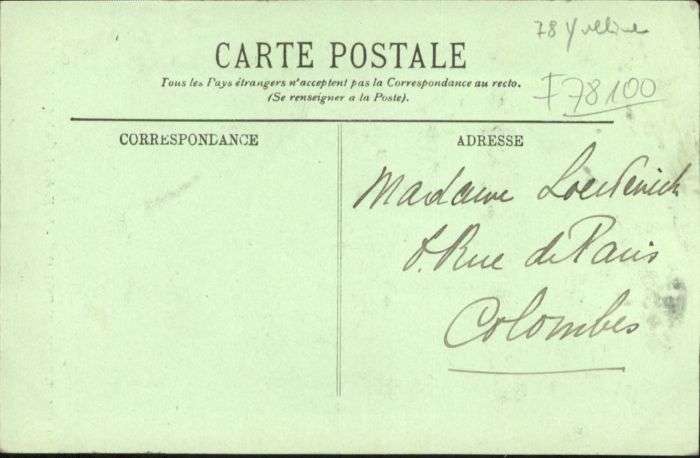 78 Yvelines
CARTE POSTALE
Tous les Pays étrangers n'acceptent pas la Correspondance au recto.
(Se renseigner a la Poste).
F78100
CORRESPONDANCE
ADRESSE
Madame
Rue de Paris
Colombes